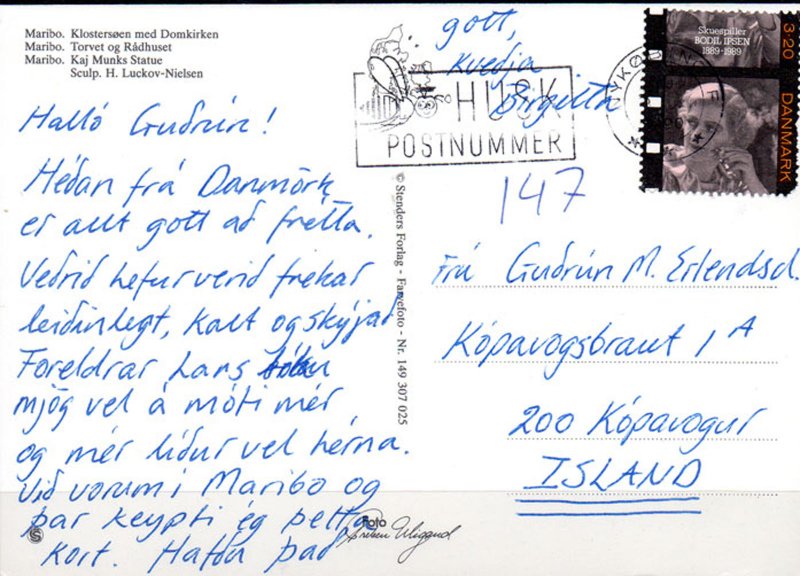 Maribo. Klostersøen med Domkirken
Maribo. Torvet og Rådhuset
Maribo. Kaj Munks Statue
Sculp. H. Luckov-Nielsen
Halló Guðrún!
Héðan frá Danmörk
er allt gott að frétta.
Veðrið hefur verið frekar
leiðinlegt, kalt og skýjað
Foreldrar Lars tóku
mjög vel á móti mér
og mér líður vel hérna.
Við vorum í Maribo og
þar keypti ég þetta
kort. Hafðu það
gott,
kveðja
Birgitta
HUSK
POSTNUMMER
NYKØ
Skuespiller
BODIL IPSEN
1889-1989
3·20
DANMARK
147
© Stenders Forlag - Farvefoto - Nr. 149 307 025
Frú Guðrún M. Erlendsd.
Kópavogsbraut 1A
200 Kópavogur
ISLAND
Foto
S